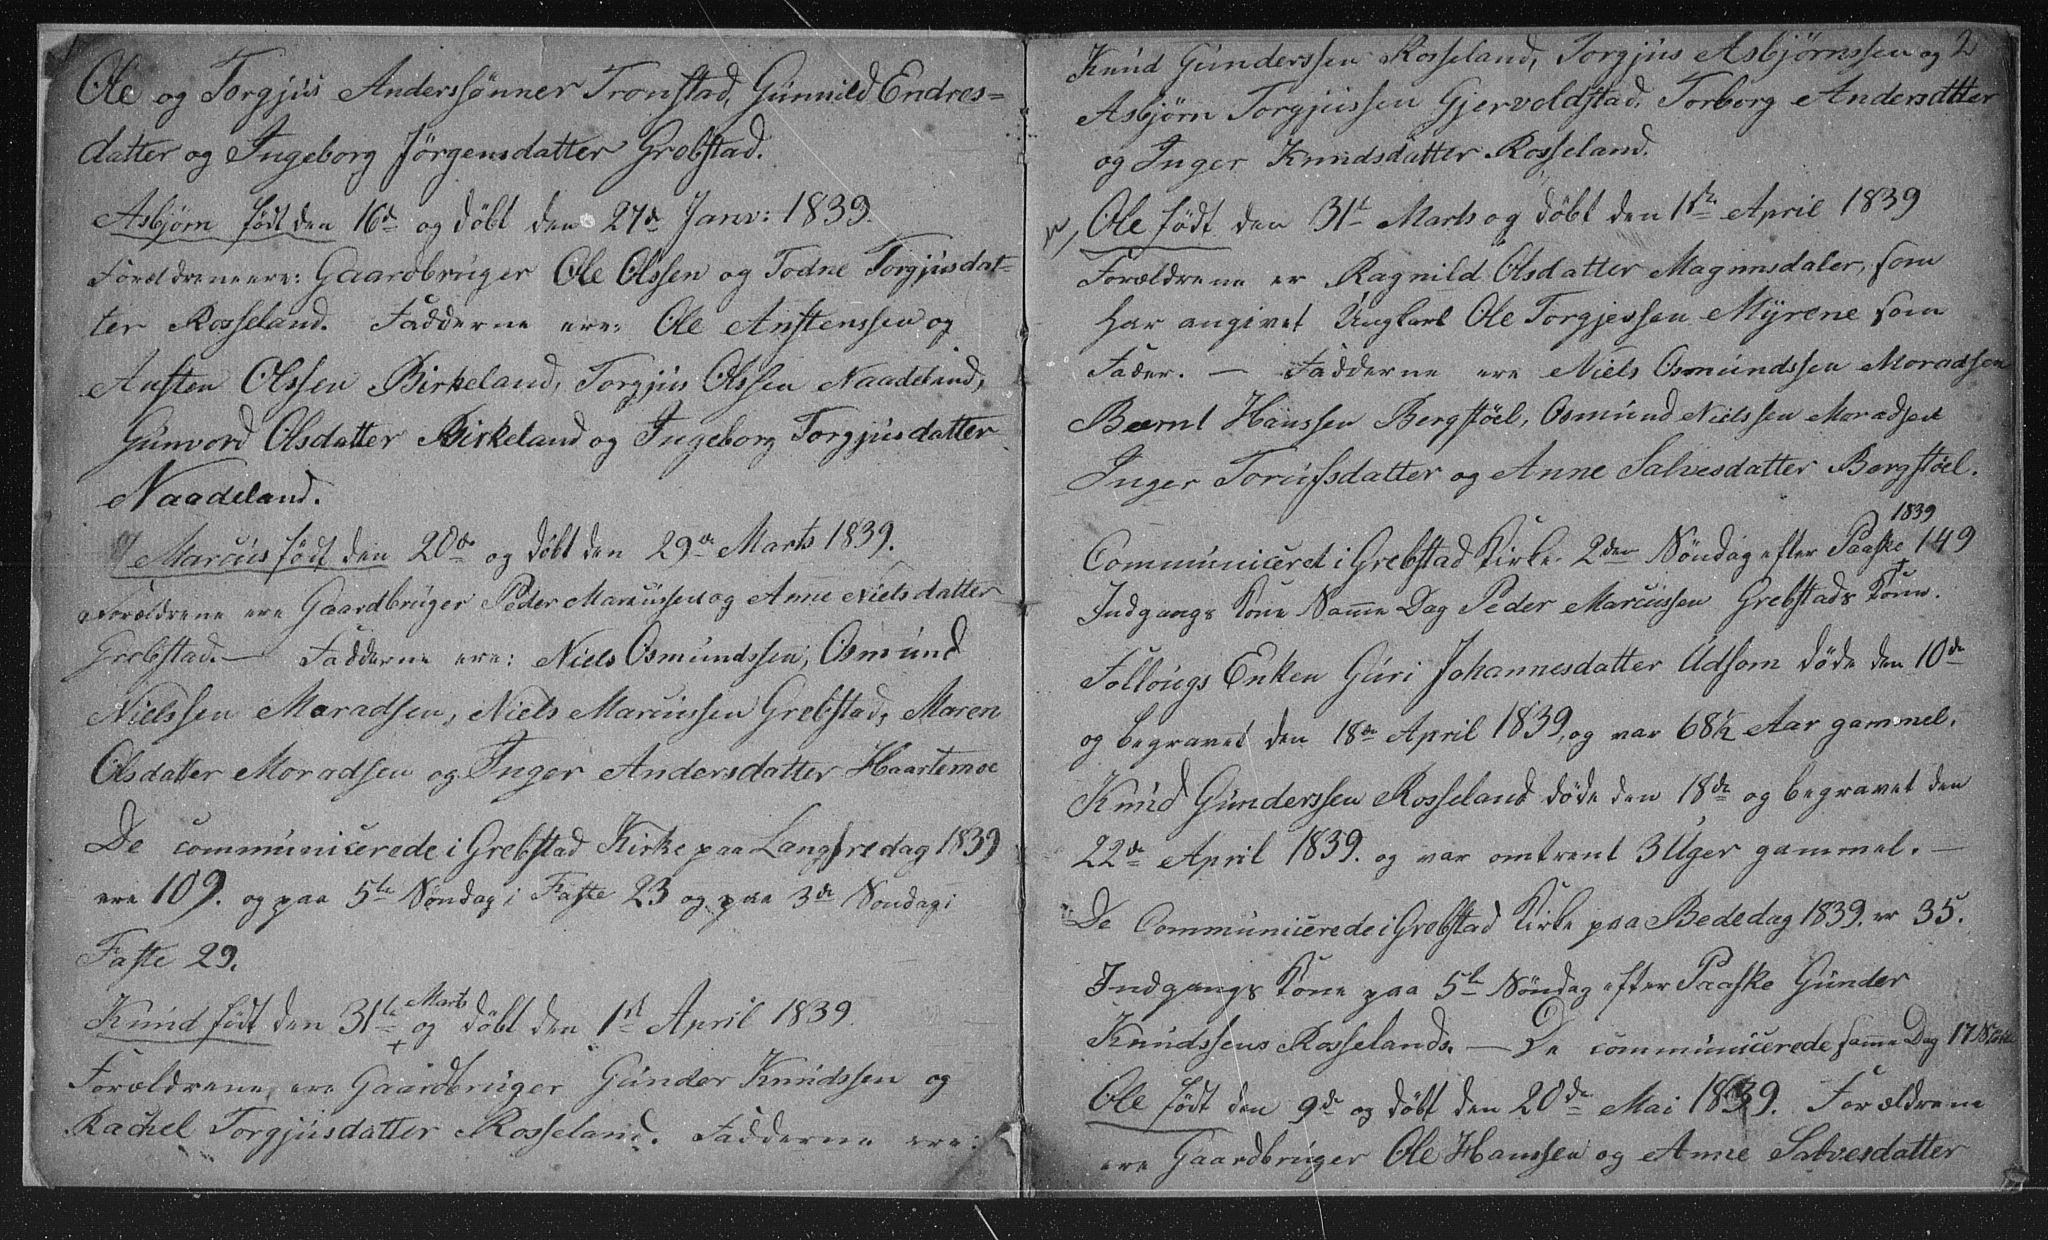 Ole og Torgjus Anderssønner Tronstad, Gunnild Endres=
datter og Ingeborg Jörgensdatter Grebstad.
Asbjørn født den 16de og døbt den 27de Janv: 1839.
Forældrene ere: Gaardbruger Ole Olssen og Todne Torgjusdat-
ter Rosseland. Fadderne ere: Ole Anstenssen og
Ansten Olssen Birkeland, Torgjus Olssen Naadeland,
Gunvord Olsdatter Birkeland og Ingeborg Torgjusdatter
Naadeland.
Marcus født den 20de og døbt den 29de Marts 1839.
Forældrene ere Gaardbruger Peder Marcussen og Anne Nielsdatter
Grebstad. — Fadderne ere: Niels Osmundssen, Osmund
Nielssen Moradsen, Niels Marcussen Grebstad, Maren
Olsdatter Moradsen og Inger Andersdatter Haartemoe
De communicerede i Grebstad Kirke paa Langfredag 1839
ere 109. og paa 5te Søndag i Faste 23 og paa 3de Søndag i
Faste 29.
Knud født den 31te Marts og døbt den 1st April 1839
Forældrene ere Gaardbruger Gunder Knudssen og
Rachel Torgjusdatter Rosseland. Fadderne ere:
2
Knud Gunderssen Rosseland, Torgjus Asbjørnssen og
Asbjørn Torgjussen Gjervoldstad, Torborg Andersdtter
og Inger Knudsdatter Rosseland.
Ole født den 31t Marts og døbt den 1ste April 1839
Forældrene er Ragnild Olsdatter Magnusdaler, som
har angivet Ungkarl Ole Torgjessen Myrene som
Fader. — Fadderne ere Niels Osmundssen Moradsen
Bernt Hanssen Bergstøel, Osmund Nielssen Moradsen
Inger Torussdatter og Anne Salvesdatter Bergstøel.
Communiceret i Grebstad Kirke 2den Søndag efter Paaske 1839 149
Indgangs Kone Samme Dag Peder Marcussen Grebstads Kone.
Follougs Enken Guri Johannesdatter Udsom døde den 10de
og begravet den 18de April 1839, og var 68½ Aar gammel.
Knud Gunderssen Rosseland døde den 18de og begravet den
22de April 1839. og var omtrent 3 Uger gammel. —
De Communicerede i Grebstad Kirke paa Bededag 1839. er 35.
Indgangs Kone paa 5te Søndag efter Paaske Gunder
Knudssens Rosselands. — De communicerede samme Dag 17
Ole født den 9de og døbt den 20de Mai 1839. Forældrene
ere Gaardbruger Ole Hanssen og Anne Salvesdatter